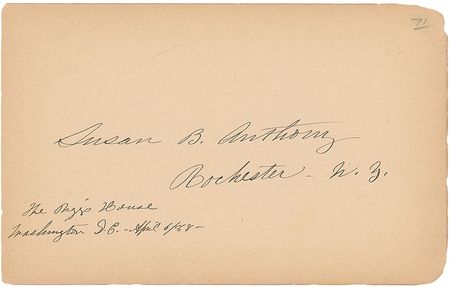 71
Susan B. Anthony
Rochester - N. Y.
The Riggs House
Washington D.C. - April 6/88 -